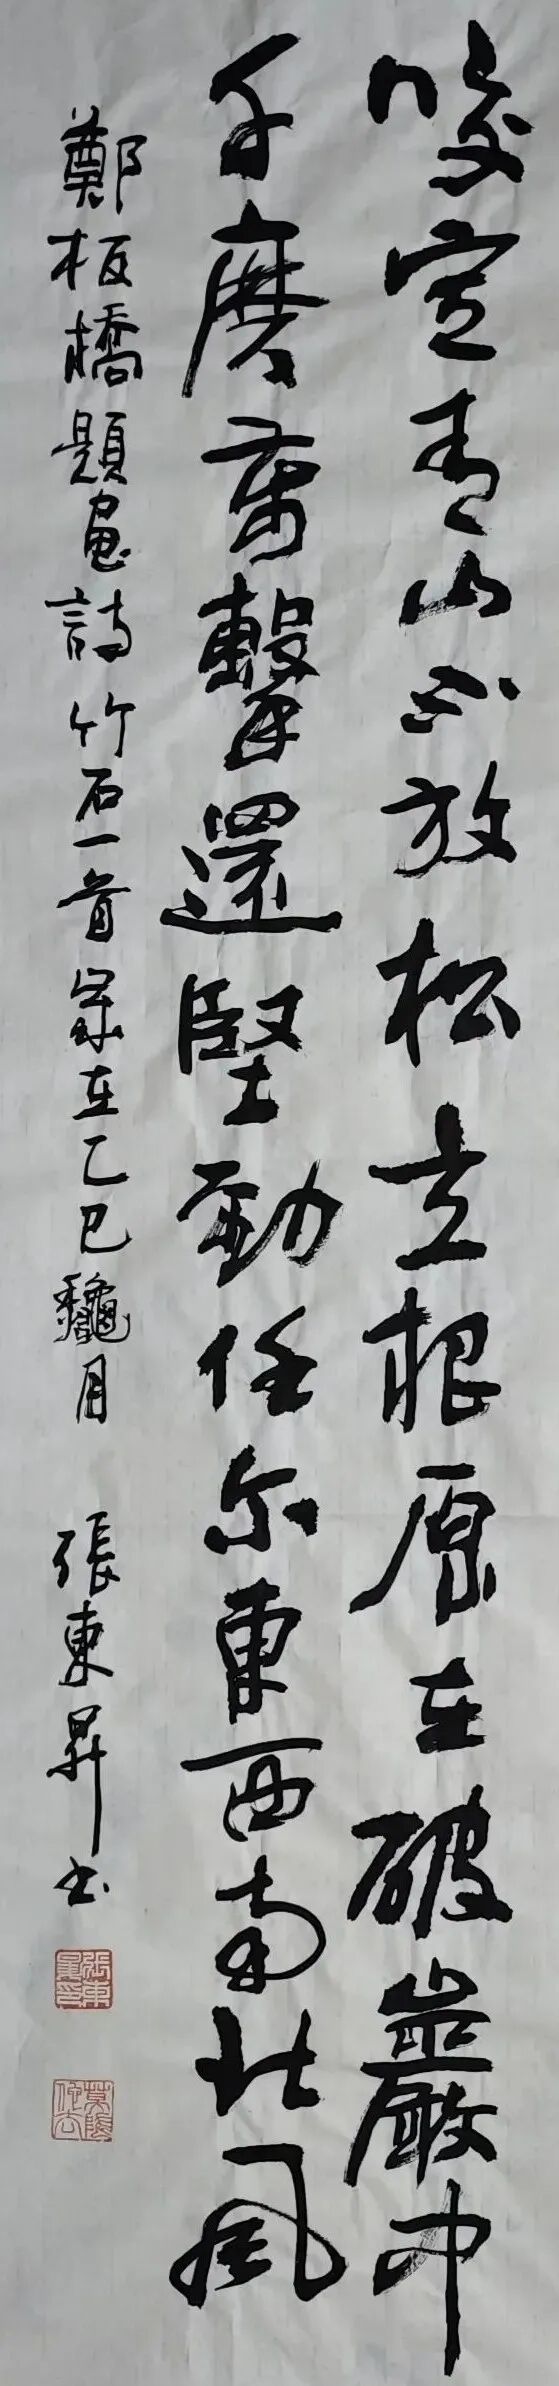 咬定青山不放松立根原在破巖中
千磨萬擊還堅勁任尔東西南北風
鄭板橋題画詩竹石一首录在乙巳龝月 張東昇书
張東昇印